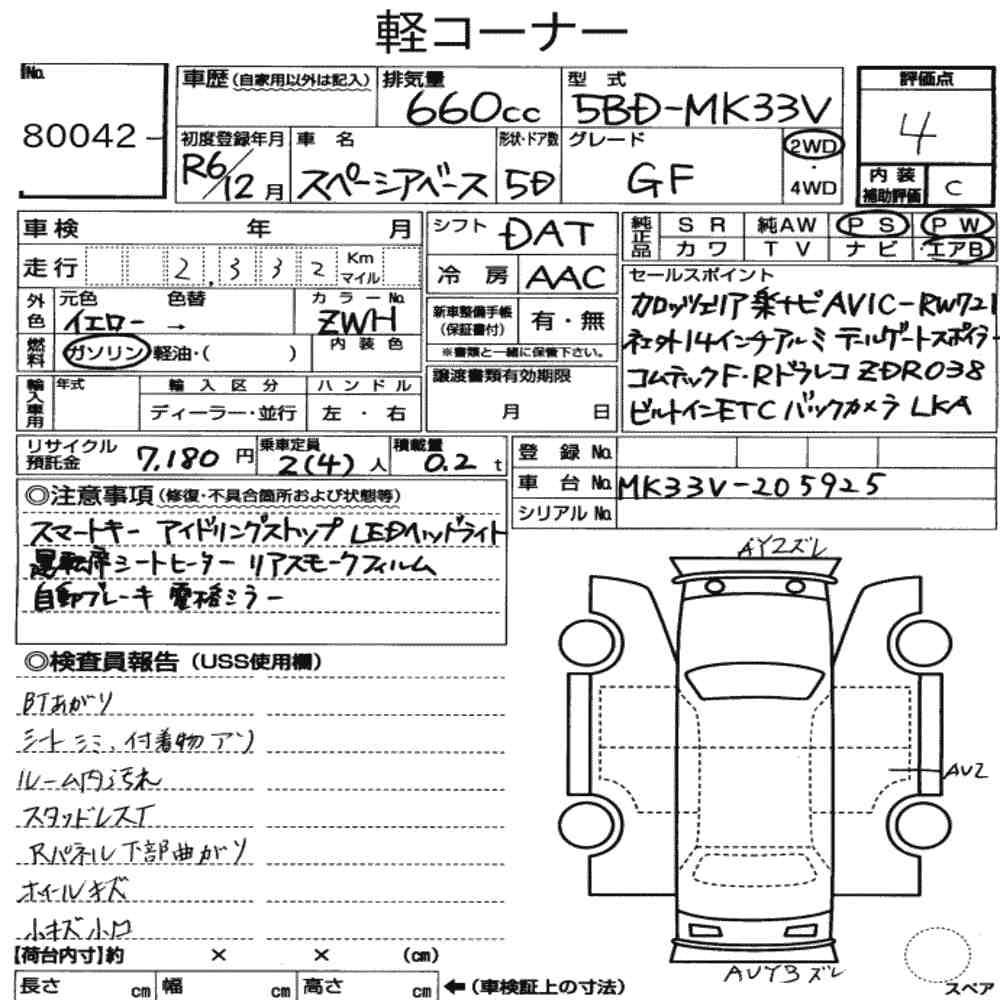 軽コーナー
No. 80042-
車歴 (自家用以外は記入) 排気量 660cc 型式 5BD-MK33V
初度登録年月 R6/12月 車名 スペーシアベース 形状・ドア数 5D グレード GF 2WD・4WD
評価点 4
内装補助評価 C
車検 年 月
走行 2,332 Km マイル
外色 元色 イエロー → 色替 カラーNo. ZWH
燃料 ガソリン 軽油・( ) 内装色
輸入車用 年式 輸入区分 ディーラー・並行 ハンドル 左・右
シフト DAT
冷房 AAC
新車整備手帳(保証書付) 有・無
※書類と一緒に保管下さい。
譲渡書類有効期限
月 日
純正品 SR 純AW PS PW
カワ TV ナビ エアB
セールスポイント
カロッツェリア楽ナビAVIC-RW721
ネセ外14インチアルミ テールゲートスポイラー
コムテックF・Rドラレコ ZDR038
ビルトインETC バックカメラ LKA
リサイクル預託金 7,180円 乗車定員 2(4)人 積載量 0.2t
登録No.
車台No. MK33V-205925
シリアルNo.
◎注意事項(修復・不具合箇所および状態等)
スマートキー アイドリングストップ LEDヘッドライト
運転席シートヒーター リアスモークフィルム
自動ブレーキ 電格ミラー
◎検査員報告(USS使用欄)
BTあがり
シート シミ、付着物アリ
ルーム内汚れ
スタッドレスT
Rパネル下部曲がり
ホイールキズ
小キズ小凹
AY2ズレ
AU2
AUY3ズレ
スペア
【荷台内寸】約 × × (cm)
長さ cm 幅 cm 高さ cm ←(車検証上の寸法)